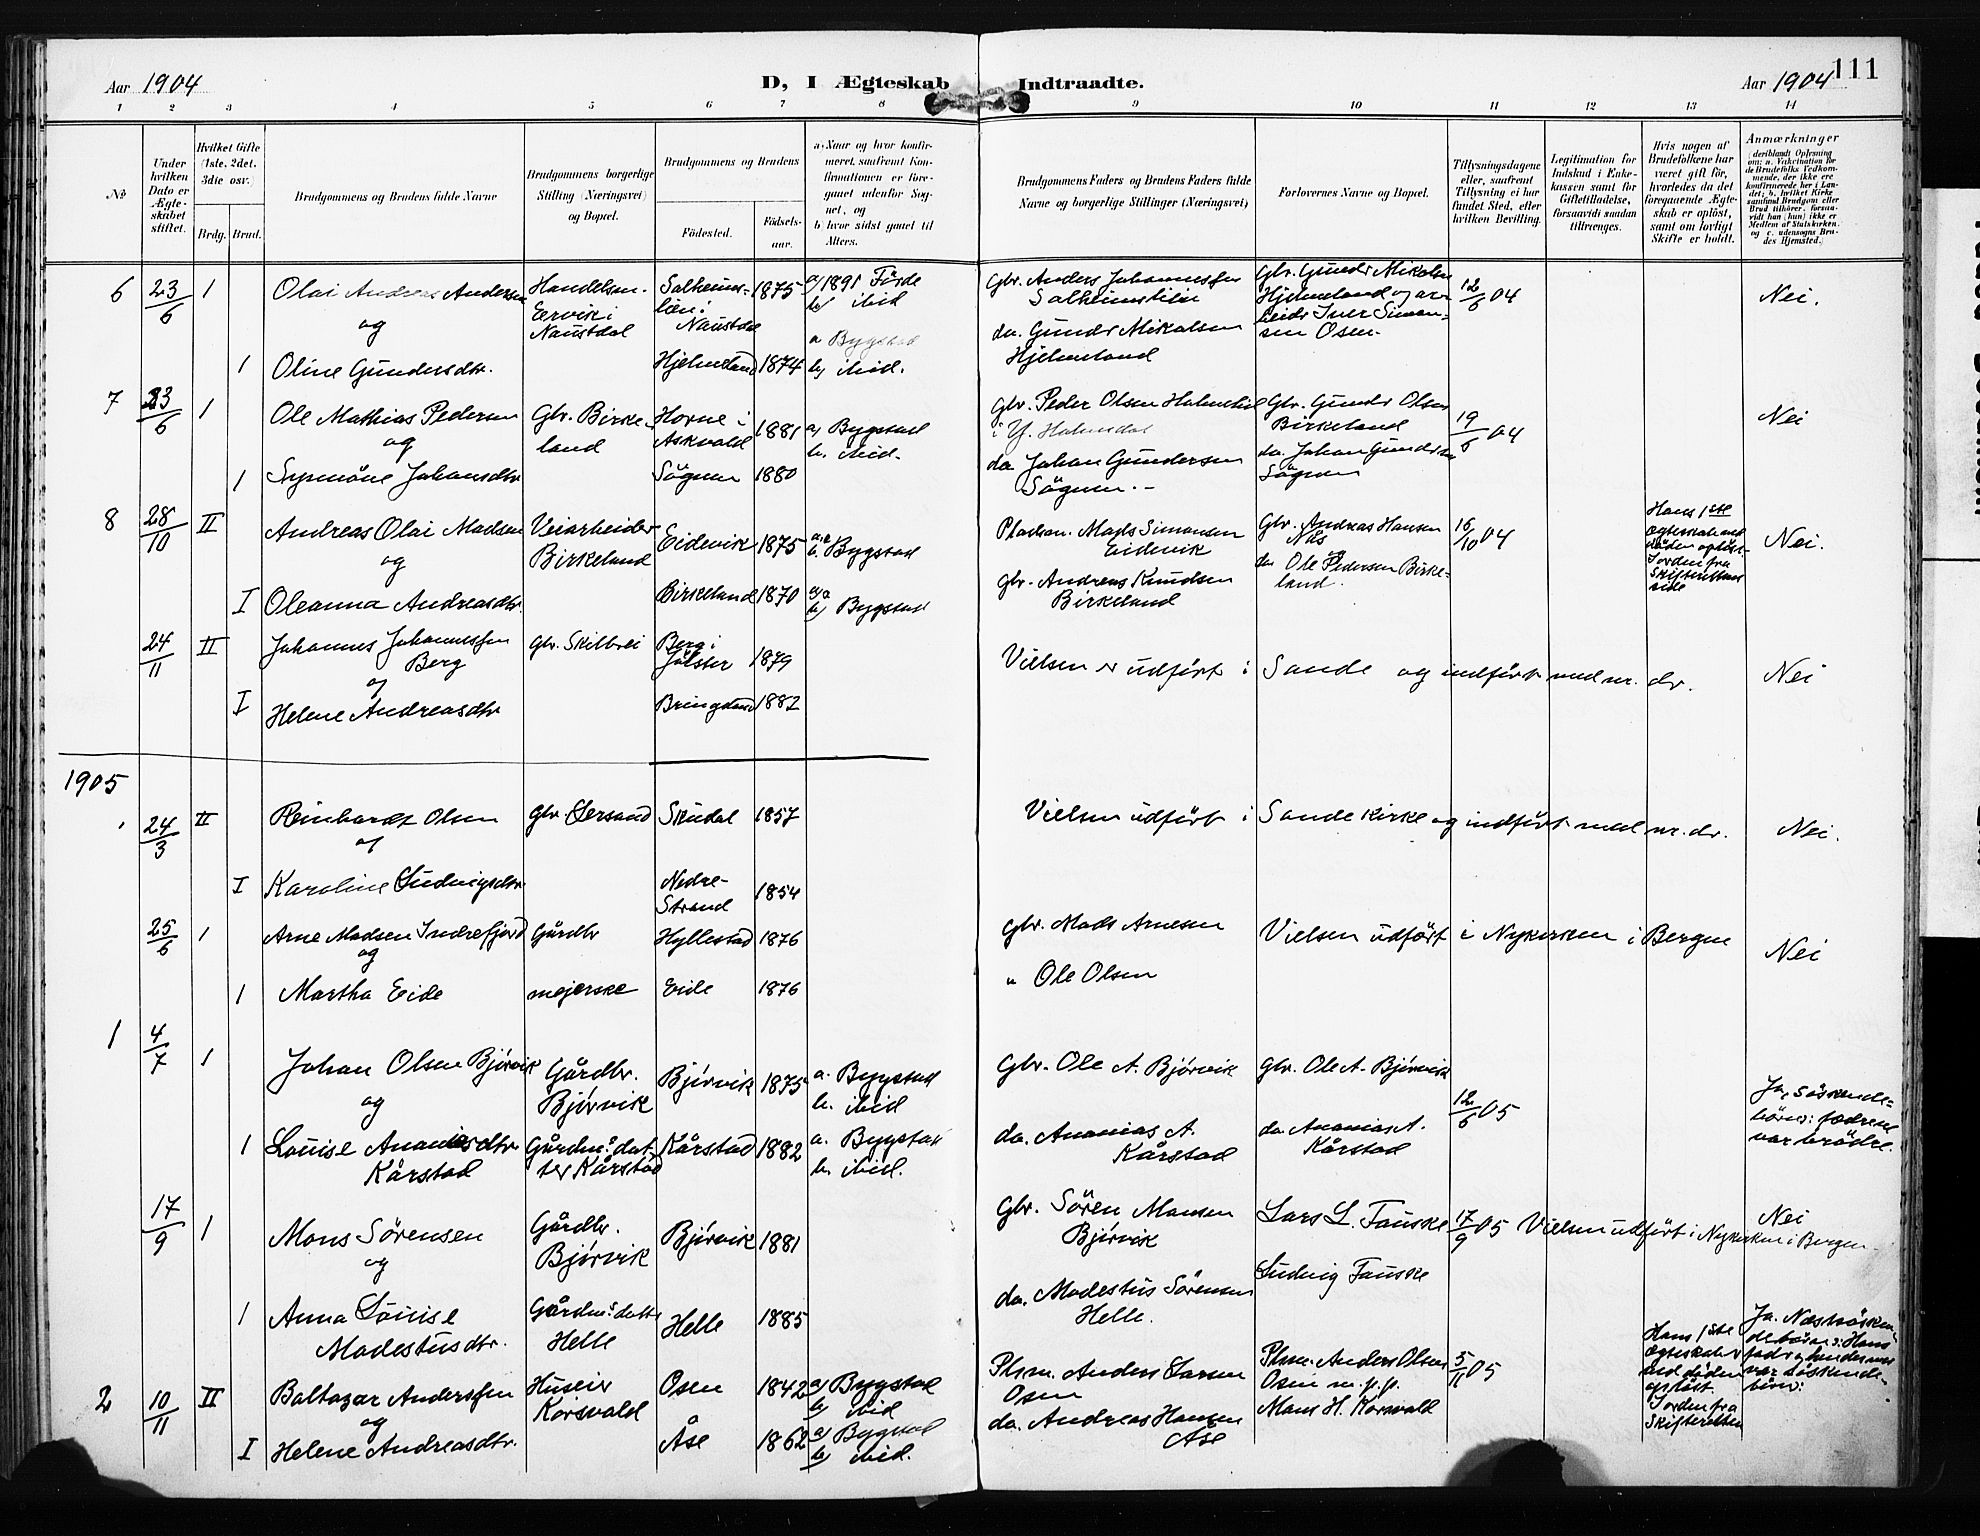 Aar 1904
D, I Ægteskab Indtraadte.
Aar 1904
111
1 2 3 4 5 6 7 8 9 10 11 12 13 14
No
Under hvilken Dato er Ægteskabet stiftet.
Hvilket Gifte (1ste, 2det, 3die osv.)
Brdg. Brud.
Brudgommens og Brudens fulde Navne
Brudgommens borgerlige Stilling (Næringsvei) og Bopæl.
Brudgommens og Brudens
Fødested.
Fødselsaar.
a) Naar og hvor konfirmeret, saafremt Konfirmationen er foregaaet udenfor Sognet, og
b) hvor sidst gaaet til Alters.
Brudgommens Faders og Brudens Faders fulde Navne og borgerlige Stillinger (Næringsvei)
Forlovernes Navne og Bopæl.
Tillysningsdagene eller, saafremt Tillysning ei har fundet Sted, efter hvilken Bevilling.
Legitimation for Indskud i Enkekassen samt for Giftetilladelse, forsaavidt saadan tiltrænges.
Hvis nogen af Brudefolkene har været gift før, hvorledes da det foregaaende Ægteskab er opløst, samt om lovligt Skifte er holdt.
Anmærkninger
(deriblandt Oplysning om: a. Vakcination for de Brudefolks Vedkommende, der ikke ere konfirmerede her i Landet; b. hvilket Kirkesamfund Brudgom eller Brud tilhører, forsaavidt han (hun) ikke er Medlem af Statskirken, og c. udensogns Brudes Hjemsted.)
6 23/6 1 Olai Andreas Andersen
Handelsm. Ervik i Naustdal
Naustdal
1875
a) 1891 Førde
b) ibid
Gbr. Anders Johannessen
Gbr. Gunder Mikalsen Hjelmeland og
sen Osen.
12/6 04
Nei.
og
1 Oline Gundersdtr.
Hjelmeland 1874
a Bygstad
b) ibid.
da. Gunder Mikalsen
Hjelmeland
7 23/6 1 Ole Mathias Pedersen
Gbr. Birkeland
Horne i Askvold 1881
a) Bygstad
b. ibid.
Gbr. Peder Olsen
i Y. Holmedal
Gbr. Gunder Olsen
Birkeland
19/6 04
Nei
og
1 Synnöve Johansdtr
Sögnen 1880
da Johan Gundersen
Sögnen. -
da. Johan Gundersen
Sögnen
8 28/10 II Andreas Olai Madsen
Veiarbeider Birkeland
Eidevik 1875
b. Bygstad
Pladsm. Mads Simonsen
Eidevik
Gbr. Andreas Hansen
Nils
16/10 04
Hans 1ste
ægteskab ved
döden oplöst.
Jorden fra
Skifteretten
side
Nei.
og
I Oleanna Andreasdtr.
Birkeland 1870
b) Bygstad
gbr. Andreas Knudsen
Birkeland
da Ole Pedersen Birkeland.
24/11 II Johannes Johannessen
Berg
gbr. Skilbrei
Berg i Jölster 1879
Vielsen er udført i Sande og indført med nr. dr.
Nei
og
I Helene Andreasdtr
1882
1905
24/3 II Reinhardt Olsen
gbr Lersand
Skudal 1857
Vielsen udført i Sande Kirke og indført med nr. dr.
Nei.
og
I Karoline Ludvigsdtr
Nedre-Strand 1854
25/6 1 Arne Madsen Indrefjord
Gårdbr
Hyllestad 1876
gbr. Mads Arnesen
Vielsen udført i Nykirken i Bergen
Nei
og
1 Martha Eide
mejerske
Eide 1876
" Ole Olsen
1 4/7 1 Johan Olsen Bjørvik
Gårdbr. Bjørvik
Bjørvik 1875
a. Bygstad
b. ibid
Gbr. Ole A. Bjørvik
gbr. Ole A. Bjørvik
12/6 05
Ja, söskende-
börn: fædrene
var brödre.
og
1 Louise Ananiasdtr
Kårstad
Gårdm.s datter Kårstad
Kårstad 1882
a. Bygstad
b. ibid.
da. Ananias A.
Kårstad
da. Ananias A.
Kårstad
17/9 1 Mons Sörensen
Gårdbr. Bjørvik
Bjørvik 1881
Gbr. Sören Monsen
Bjørvik
Lars L. Fauske
17/9 05 Vielsen udført i Nykirken i Bergen
Nei
og
1 Anna Louise
Modestusdtr.
Gårdm.s datter Helle
Helle 1885
da. Modestus Sörensen
Helle.
Ludvig Fauske
2 10/11 II Baltazar Anderssen
Huseier Korsvold
Osen 1842
a) Bygstad
b) ibid
Plsm. Anders Larsen
Osen
Plsm. Anders Olsen
Osen m.p.p.
5/11 05
Hans 1ste
ægteskab er
ved döden
oplöst.
Jorden fra
Skifteretten
Ja. Næstsösken-
debörn: Hans
far og hendes mor
var söskende-
börn:
og
I Helene Andreasdtr.
Åse 1862
a) Bygstad
b) ibid.
da. Andreas Hansen
Åse
Mons H. Korsvold